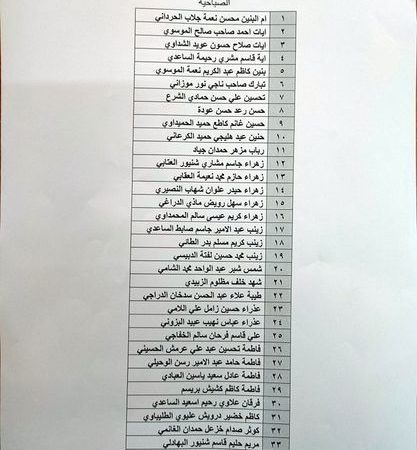 الصباحية
١ ام البنين محسن نعمة جلاب الحرداني
٢ ايات احمد صاحب صالح الموسوي
٣ ايات صلاح حسون عويد الشداوي
٤ اية قاسم مشري رحيمة الساعدي
٥ بنين كاظم عبد الكريم نعمة الموسوي
٦ تبارك صاحب ناجي نور موزاني
٧ تحسين علي حسن حمادي الشرع
٨ حسن رعد حسن عودة
٩ حسين غانم كاطع حميد الحميداوي
١٠ حنين عبد هليجي حميد الكرعاني
١١ رباب مزهر حمدان جياد
١٢ زهراء جاسم مشاري شنيور العتابي
١٣ زهراء حازم محمد نعيمة العقابي
١٤ زهراء حيدر علوان شهاب النصيري
١٥ زهراء سهل رويض ماذي الدراغي
١٦ زهراء كريم عيسى سالم المحمداوي
١٧ زينب عبد الامير جاسم صابط الساعدي
١٨ زينب كريم مسلم بدر الطائي
١٩ زينب محمد حسين لفتة الدبيسي
٢٠ شمس شبر عبد الواحد محمد الشامي
٢١ شهد خلف مظلوم الزبيدي
٢٢ طيبة علاء عبد الحسن سدخان الدراجي
٢٣ عذراء حسين زامل علي اللامي
٢٤ عذراء عباس نهيب عبيد البزوني
٢٥ علي قاسم فرحان سالم الخفاجي
٢٦ فاطمة تحسين عبد علي عرمش الحسيني
٢٧ فاطمة حامد عبد الامير رسن الوحيلي
٢٨ فاطمة عادل سعيد ياسين العبادي
٢٩ فاطمة كاظم كشيش بريسم
٣٠ فرقان علاوي رحيم اسعيد الساعدي
٣١ كاظم خضير درويش عليوي الطليباوي
٣٢ كوثر صدام خزعل حمدان الغانمي
٣٣ مريم حليم قاسم شنيور البهادلي